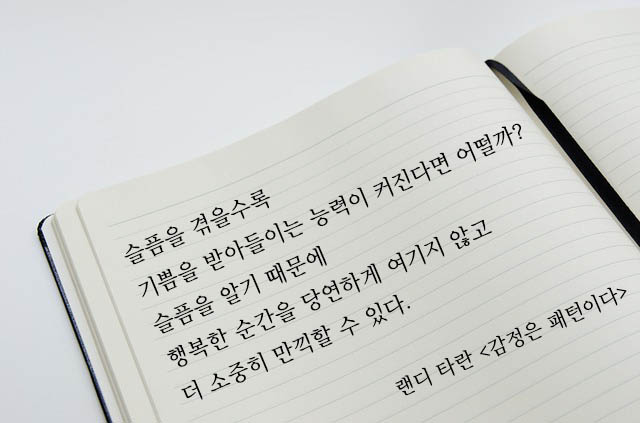 슬픔을 겪을수록
기쁨을 받아들이는 능력이 커진다면 어떨까?
슬픔을 알기 때문에
행복한 순간을 당연하게 여기지 않고
더 소중히 만끽할 수 있다.
랜디 타란 <감정은 패턴이다>